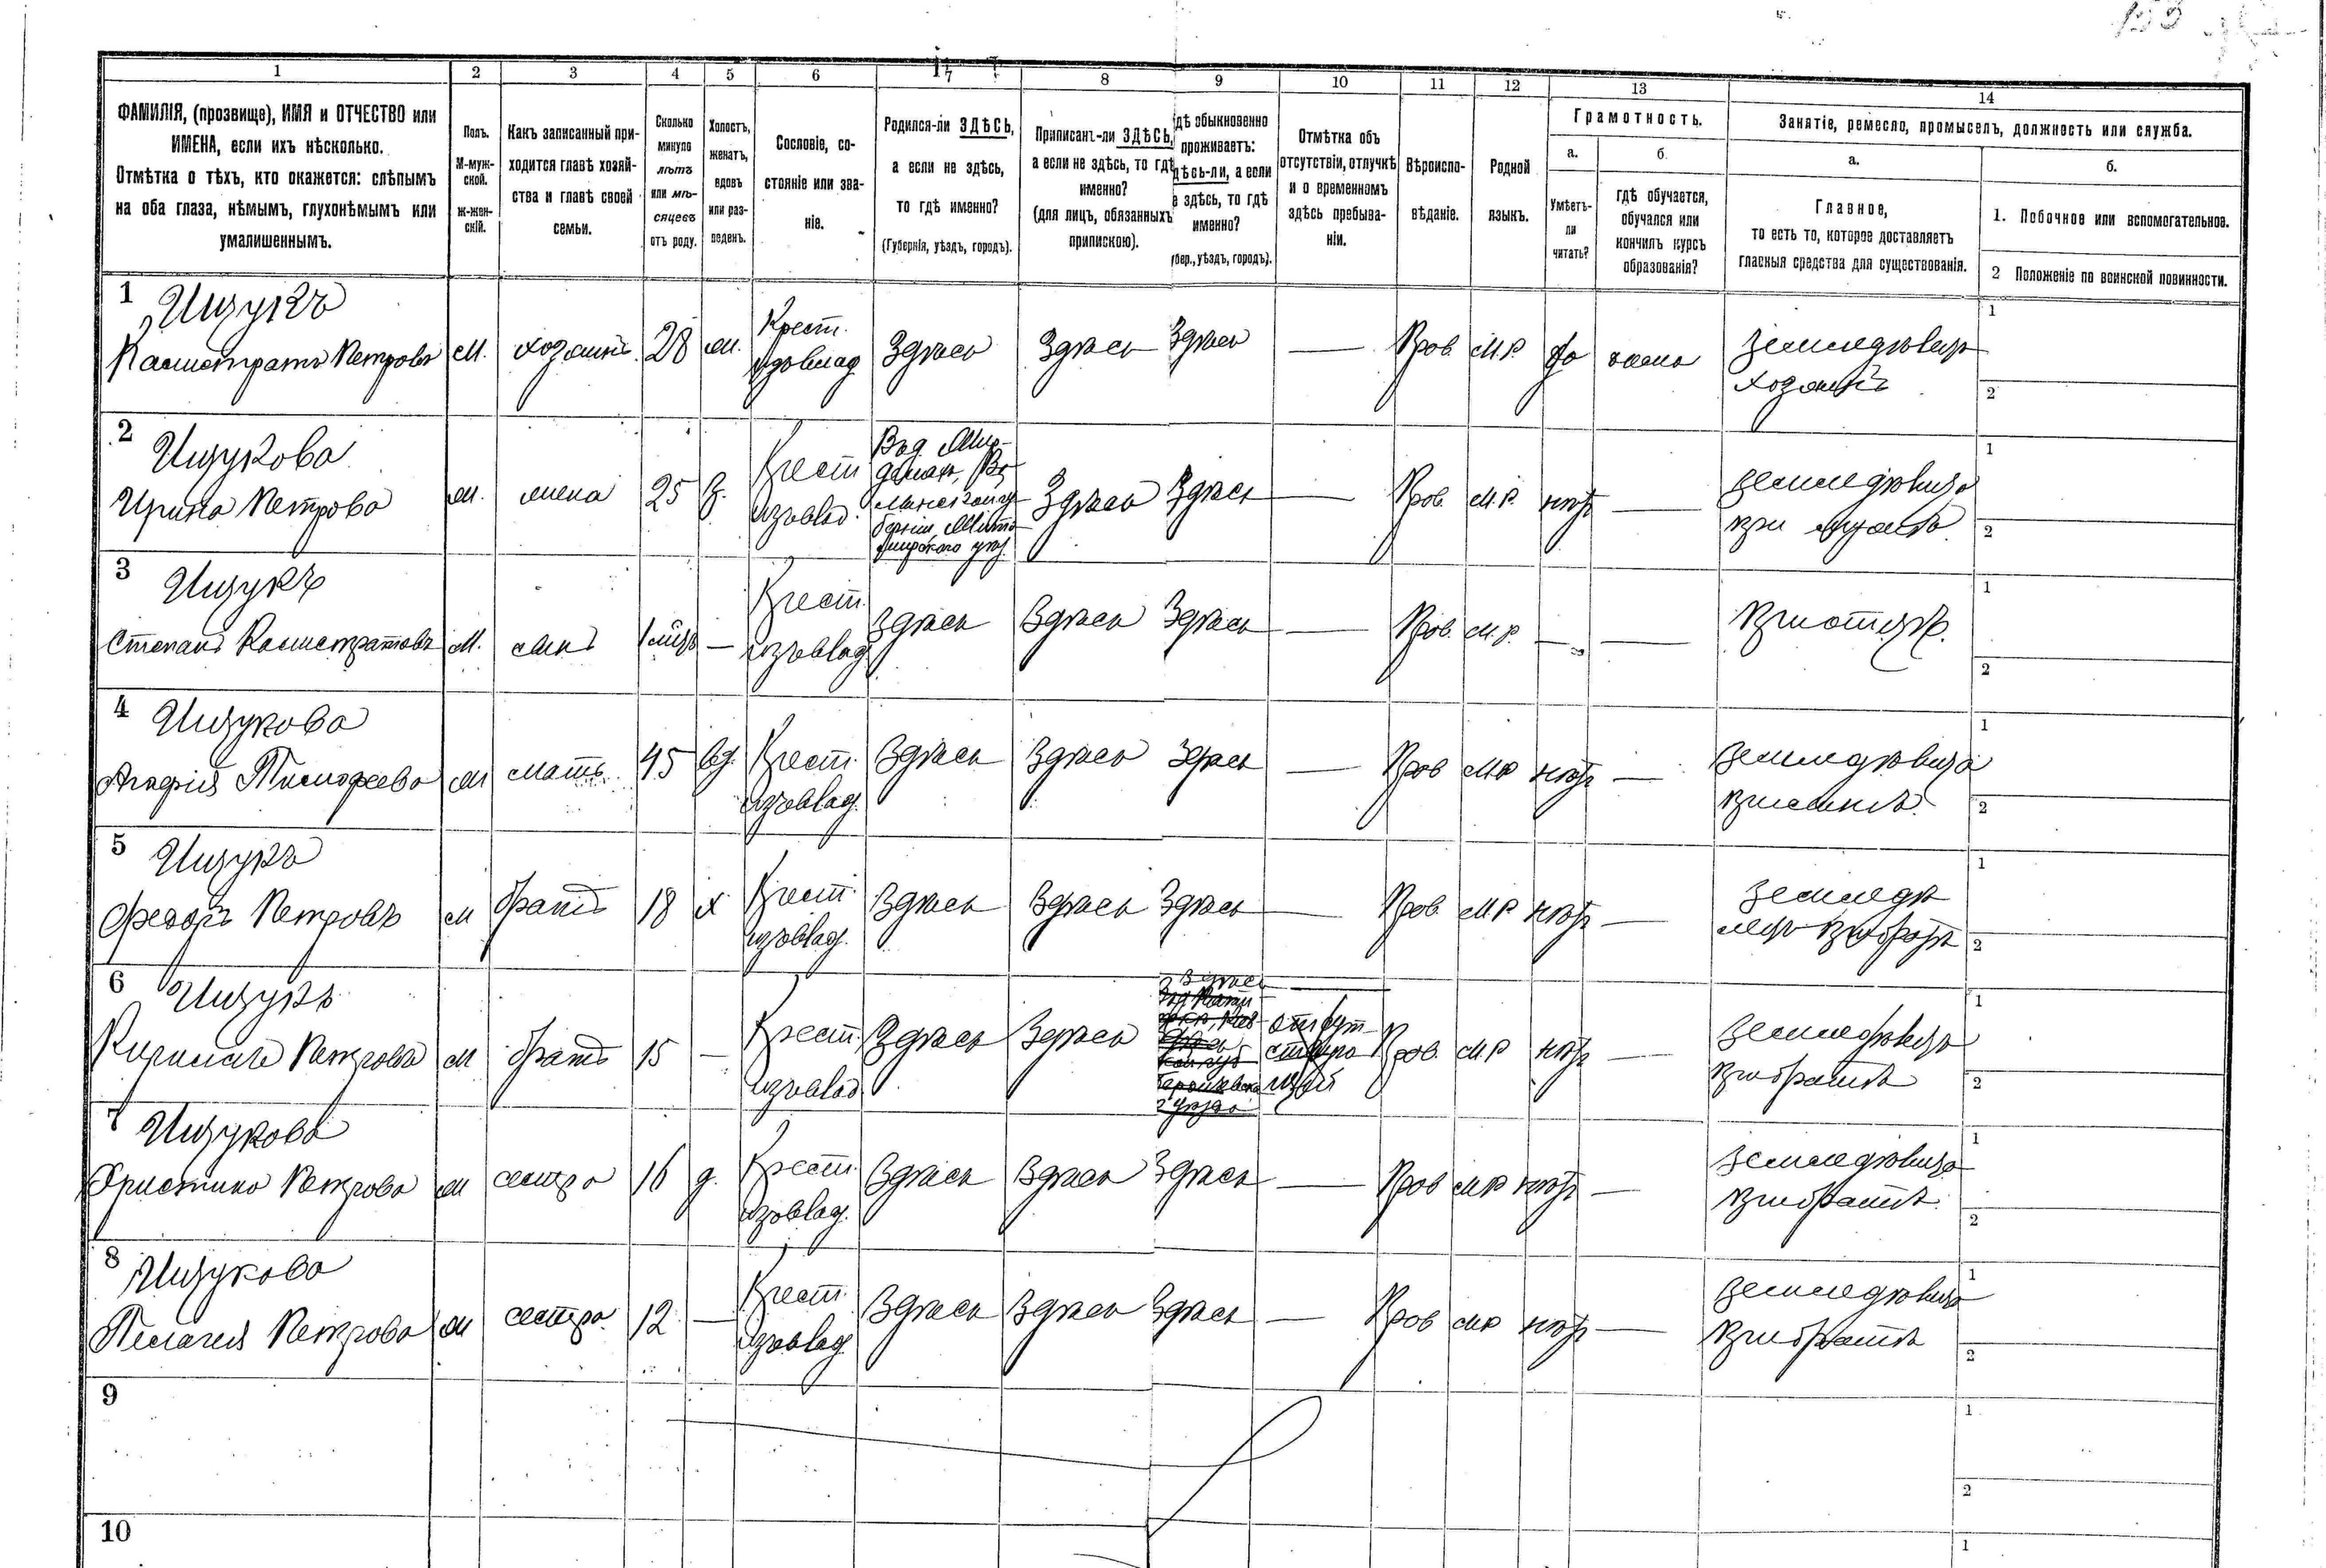 153
1 2 3 4 5 6 7 8 9 10 11 12 13 14
ФАМИЛІЯ, (прозвище), ИМЯ и ОТЧЕСТВО или
ИМЕНА, если ихъ нѣсколько.
Отмѣтка о тѣхъ, кто окажется: слѣпымъ
на оба глаза, нѣмымъ, глухонѣмымъ или
умалишеннымъ.
Полъ.
М-муж-
ской.
Ж-жен-
скій.
Какъ записанный при-
ходится главѣ хозяй-
ства и главѣ своей
семьи.
Сколько
минуло
лѣтъ
или мѣ-
сяцевъ
отъ роду.
Холостъ,
женатъ,
вдовъ
или раз-
веденъ.
Сословіе, со-
стояніе или зва-
ніе.
Родился-ли ЗДѢСЬ,
а если не здѣсь,
то гдѣ именно?
(Губернія, уѣздъ, городъ).
Приписанъ-ли ЗДѢСЬ,
а если не здѣсь, то гдѣ
именно?
(для лицъ, обязанныхъ
припискою).
дѣ обыкновенно
проживаетъ:
дѣсь-ли, а если
е здѣсь, то гдѣ
именно?
убер., уѣздъ, городъ).
Отмѣтка объ
отсутствіи, отлучкѣ
и о временномъ
здѣсь пребыва-
ніи.
Вѣроиспо-
вѣданіе.
Родной
языкъ.
Грамотность.
а.
Умѣетъ-
ли
читать?
б.
гдѣ обучается,
обучался или
кончилъ курсъ
образованія?
Занятіе, ремесло, промыселъ, должность или служба.
а.
Главное,
то есть то, которое доставляетъ
главныя средства для существованія.
б.
1. Побочное или вспомогательное.
2 Положеніе по воинской повинности.
1
Ищукъ
Калистратъ Петровъ м. хозяинъ 28 ж. Крест. Здѣсь Здѣсь Здѣсь — Прав. М.Р. да
хозяинъ
1
2
2
Ищукова
Ирина Петрова ж. жена 25 З. Крест Здѣсь Здѣсь — Прав. М.Р. нѣтъ —
при мужѣ
1
2
3
Ищукъ
Степанъ Калистратовъ М. сынъ — Крест. Здѣсь Здѣсь Здѣсь — Прав. М.Р. — —
при отцѣ.
1
2
4
Ищукова
Агафія Тимофеева ж мать 45 вд. Крест. Здѣсь Здѣсь Здѣсь — Прав М.Р нѣтъ —
1
2
5
Ищукъ
Федоръ Петровъ м братъ 18 х Крест. Здѣсь Здѣсь Здѣсь — Прав. М.Р нѣтъ —
1
2
6
Ищукъ
Кирилъ Петровъ м братъ 15 — Крест. Здѣсь Здѣсь Здѣсь Прав. М.Р нѣтъ —
при братѣ
1
2
7
Ищукова
Христина Петрова ж сестра 16 д. Крест. Здѣсь Здѣсь Здѣсь — Прав М.Р нѣтъ —
при братѣ
1
2
8
Ищукова
Пелагея Петрова ж сестра 12 — Крест. Здѣсь Здѣсь Здѣсь — Прав М.Р нѣтъ —
при братѣ
1
2
9
1
2
10
1